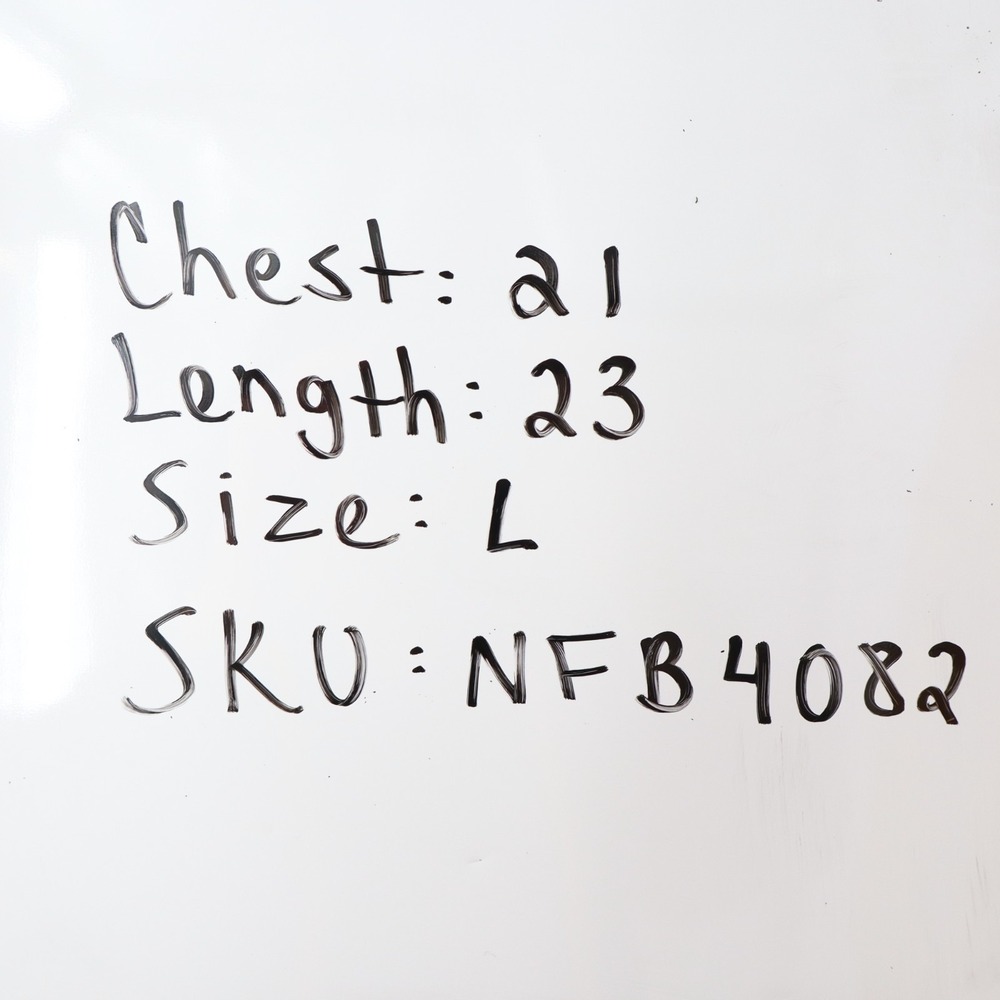 Chest: 21
Length: 23
Size: L
SKU: NFB4082